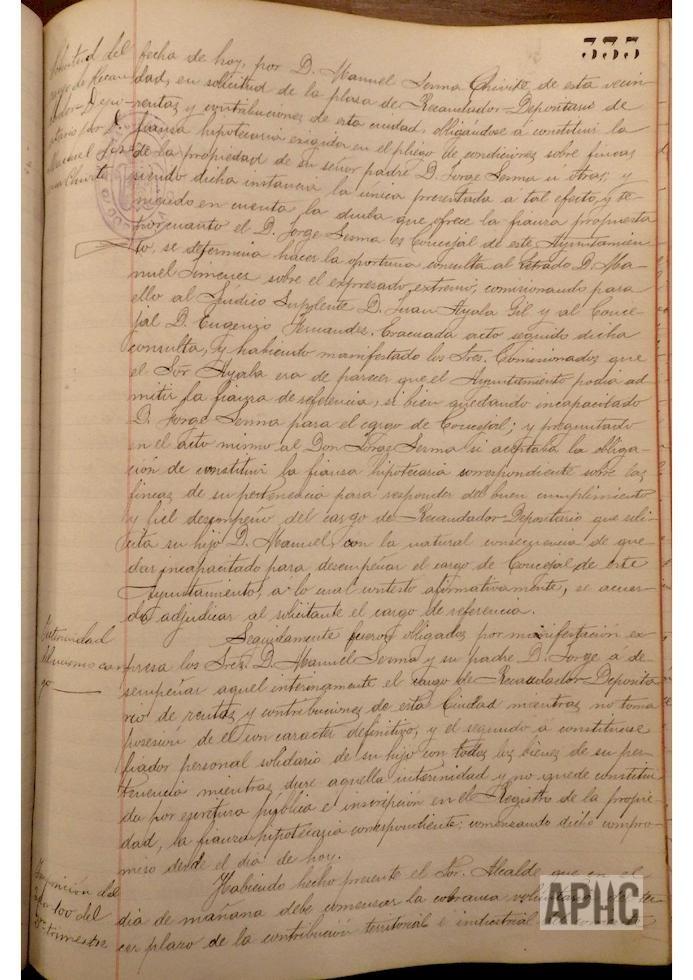 335
Solicitud del
cargo de Recau-
dador-Depo-
sitario por D.
Manuel Ser-
ma Chivite
fecha de hoy, por D. Manuel Serma Chivite, de esta vecin-
dad, en solicitud de la plaza de Recaudador-Depositario de
rentas y contribuciones de esta ciudad, obligándose á constituir la
fianza hipotecaria exigida en el pliego de condiciones sobre fincas
de la propiedad de su señor padre D. Jorge Serma u otras; y
siendo dicha instancia la única presentada á tal efecto, y te-
niendo en cuenta la duda que ofrece la fianza propuesta
por cuanto el D. Jorge Serma es Concejal de este Ayuntamien-
to, se determina hacer la oportuna consulta al letrado D. Ma-
nuel Jimenez sobre el expresado extremo, comisionando para
ello al Síndico Suplente D. Juan Ayala Gil y al Conce-
jal D. Eugenio Fernandez. Evacuada acto seguido dicha
consulta, y habiendo manifestado los Sres. Comisionados que
el Sor Ayala era de parecer que el Ayuntamiento podia ad-
mitir la fianza de referencia, si bien quedando incapacitado
D. Jorge Serma para el cargo de Concejal; y preguntado
en el acto mismo al Don Jorge Serma si aceptaba la obliga-
ción de constituir la fianza hipotecaria correspondiente sobre las
fincas de su pertenencia para responder del buen cumplimiento
y fiel desempeño del cargo de Recaudador-Depositario que soli-
cita su hijo D. Manuel, con la natural consecuencia de que-
dar incapacitado para desempeñar el cargo de Concejal de este
Ayuntamiento, a lo cual contestó afirmativamente, se acuer-
da adjudicar al solicitante el cargo de referencia.
Interinidad
del mismo car-
go
Seguidamente fueron obligados por manifestación ex-
presa los Sres. D. Manuel Serma y su padre D. Jorge á de-
sempeñar aquel interinamente el cargo de Recaudador-Deposita-
rio de rentas y contribuciones de esta Ciudad mientras no toma
posesión de él con caracter definitivo, y el segundo á constituirse
fiador personal solidario de su hijo con todos los bienes de su per-
tenencia mientras dure aquella interinidad y no quede constitui-
da por escritura pública é inscripción en el Registro de la propie-
dad, la fianza hipotecaria correspondiente: comenzando dicho compro-
miso desde el día de hoy.
del
por 100 del
trimestre
Habiendo hecho presente el Sor. Alcalde que en el
día de mañana debe comenzar la cobranza voluntaria del ter-
cer plazo de la contribución territorial é industrial
APHC